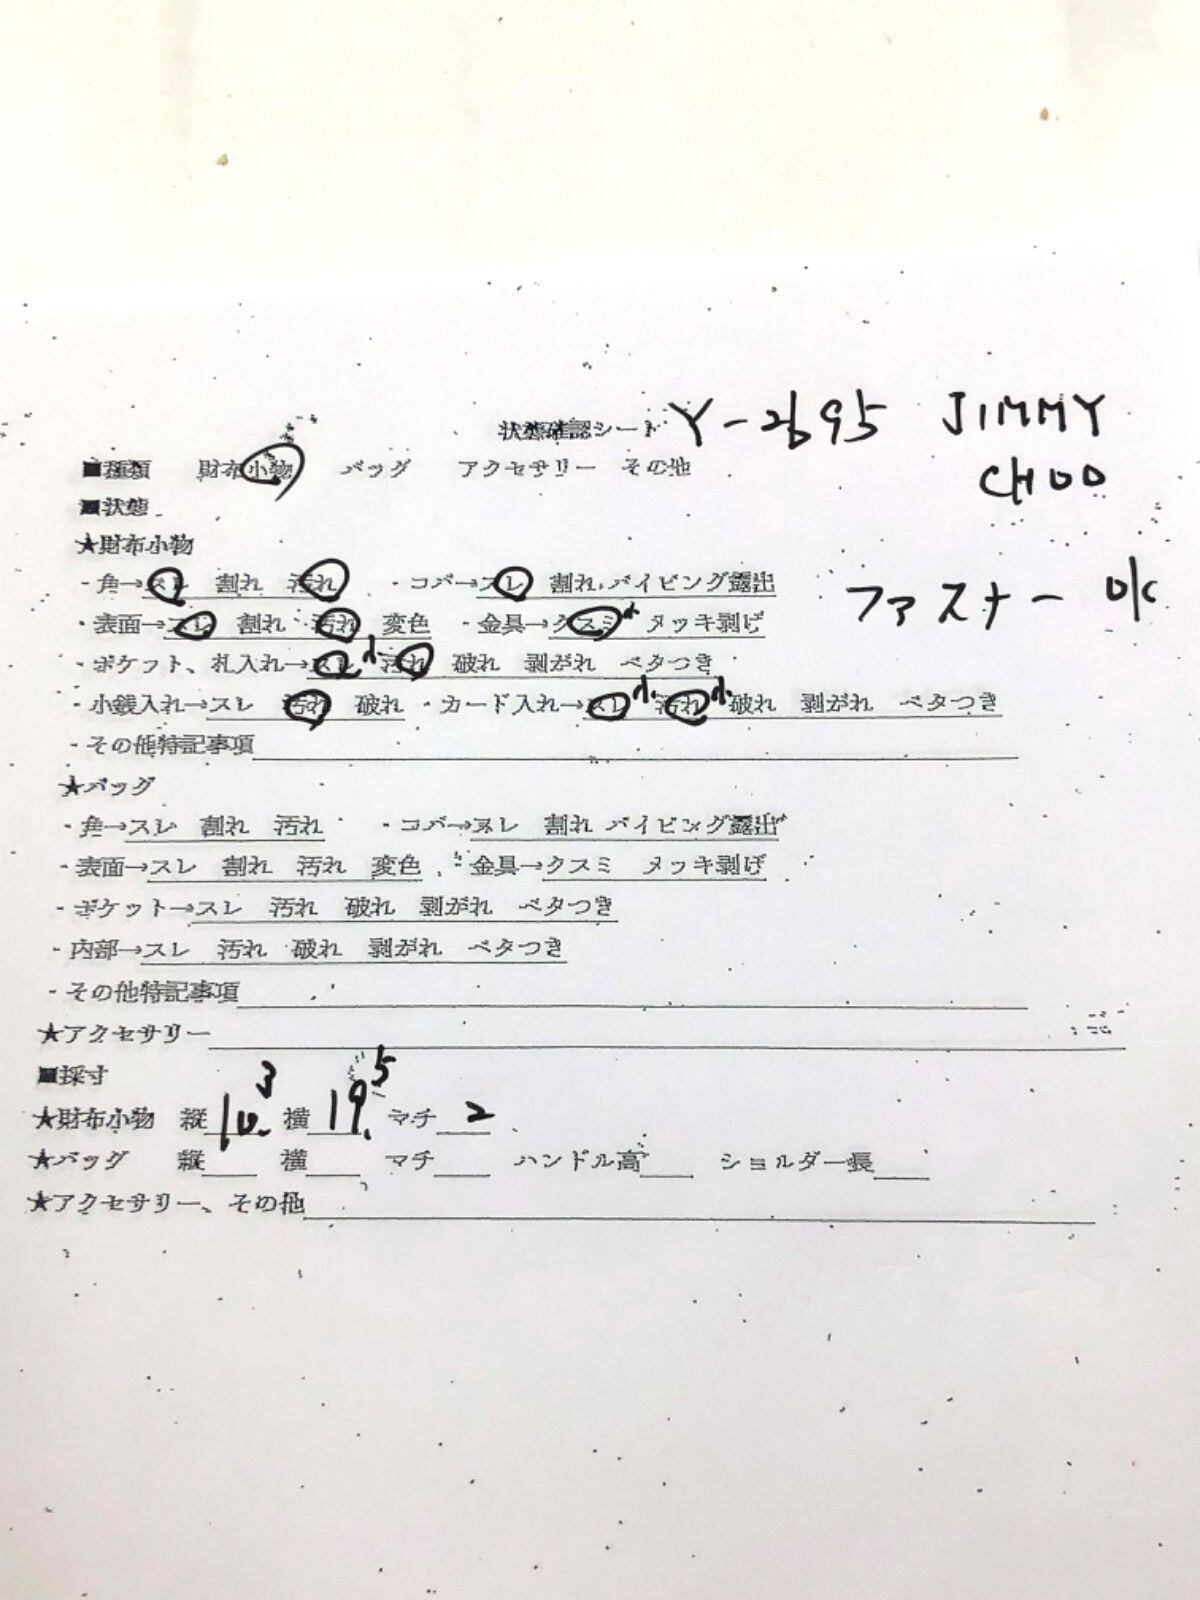 状態確認シート Y-2695 JIMMY
CHOO
■種類 財布小物 バッグ アクセサリー その他
■状態
★財布小物
・角→スレ 割れ 汚れ ・コバ→スレ 割れ パイピング露出
ファスナー OK
・表面→スレ 割れ 汚れ 変色 ・金具→クスミ小 メッキ剥げ
・ポケット、札入れ→スレ小 汚れ 破れ 剥がれ ベタつき
・小銭入れ→スレ 汚れ 破れ ・カード入れ→スレ小 汚れ小 破れ 剥がれ ベタつき
・その他特記事項
★バッグ
・角→スレ 割れ 汚れ ・コバ→スレ 割れ パイピング露出
・表面→スレ 割れ 汚れ 変色 ・金具→クスミ メッキ剥げ
・ポケット→スレ 汚れ 破れ 剥がれ ベタつき
・内部→スレ 汚れ 破れ 剥がれ ベタつき
・その他特記事項
★アクセサリー
■採寸
★財布小物 縦10.3 横19.5 マチ2
★バッグ 縦 横 マチ ハンドル高 ショルダー長
★アクセサリー、その他